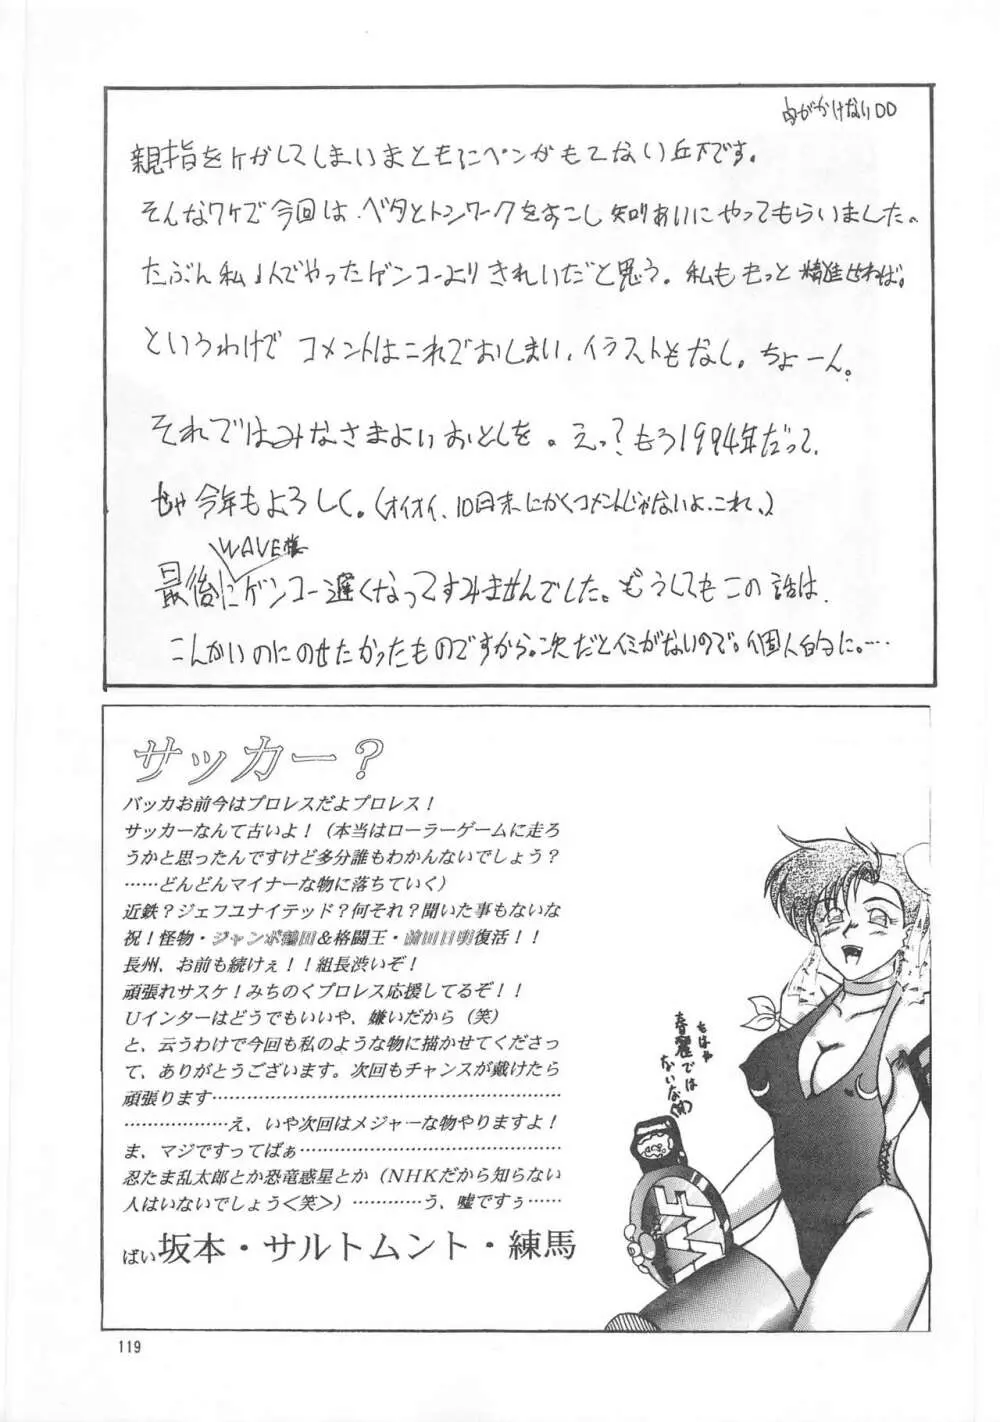 親指をケがしてしまいまともにペンがもてない丘下です。
そんなワケで今回は、ベタとトンワークをすこし知りあいにやってもらいました。
たぶん私1人でやったゲンコーよりきれいだと思う。私ももっと精進せねば。
というわけでコメントはこれでおしまい、イラストもなし。ちょーん。
それではみなさまよいおとしを。えっ?もう1994年だって、
ぢゃ今年もよろしく。(オイオイ、10月末にかくコメントじゃないよ、これ、)
WAVE様
最後にゲンコー遅くなってすみませんでした。どうしてもこの話は、
こんかいのにのせたかったものですから。次だとイミがないので。個人的に。……
サッカー?
バッカお前今はプロレスだよプロレス!
サッカーなんて古いよ!(本当はローラーゲームに走ろ
うかと思ったんですけど多分誰もわかんないでしょう?
……どんどんマイナーな物に落ちていく)
近鉄?ジェフユナイテッド?何それ?聞いた事もないな
祝!怪物・ジャンボ鶴田&格闘王・前田日明復活!!
長州、お前も続けぇ!!組長渋いぞ!
頑張れサスケ!みちのくプロレス応援してるぞ!!
Uインターはどうでもいいや、嫌いだから(笑)
と、云うわけで今回も私のような物に描かせてくださっ
て、ありがとうございます。次回もチャンスが戴けたら
頑張ります……………………………………………………
………………え、いや次回はメジャーな物やりますよ!
ま、マジですってばぁ………………………………………
忍たま乱太郎とか恐竜惑星とか(NHKだから知らない
人はいないでしょう<笑>)…………う、嘘ですぅ……
ばい坂本・サルトムント・練馬
もはや
春麗では
ないな(笑)
119